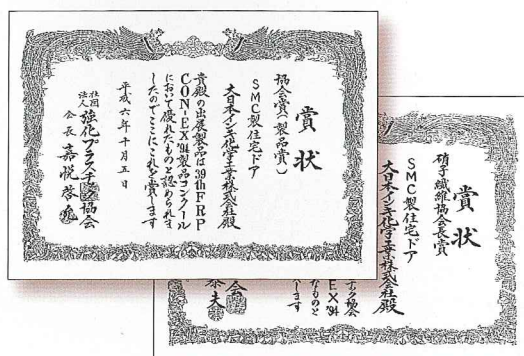 賞状
協会賞(製品賞)
SMC製住宅ドア
大日本インキ化学工業株式会社殿
貴殿の出展製品は39th FRP
CON-EX'94製品コンクール
において優れたものと認められま
したのでここにこれを賞します
平成六年十月五日
社団法人 強化プラスチック協会
会長 嘉悦啓
賞状
硝子繊維協会長賞
SMC製住宅ドア
大日本インキ化学工業株式会社殿
EX'94
なものと
します
会
泰夫